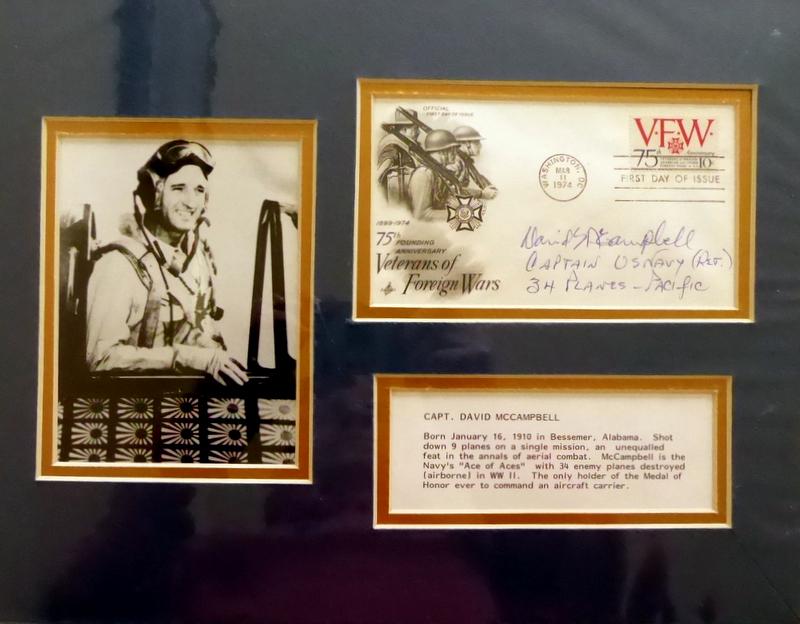 OFFICIAL
FIRST DAY OF ISSUE
V·F·W·
75th Anniversary
10c
WASHINGTON, DC
MAR
11
1974
FIRST DAY OF ISSUE
1899-1974
75th
FOUNDING
ANNIVERSARY
Veterans of
Foreign Wars
David McCampbell
CAPTAIN US NAVY (RET.)
34 PLANES - PACIFIC
CAPT. DAVID MCCAMPBELL
Born January 16, 1910 in Bessemer, Alabama. Shot
down 9 planes on a single mission, an unequalled
feat in the annals of aerial combat. McCampbell is the
Navy's "Ace of Aces" with 34 enemy planes destroyed
(airborne) in WW II. The only holder of the Medal of
Honor ever to command an aircraft carrier.